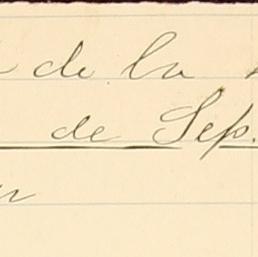 de la
de Sep.